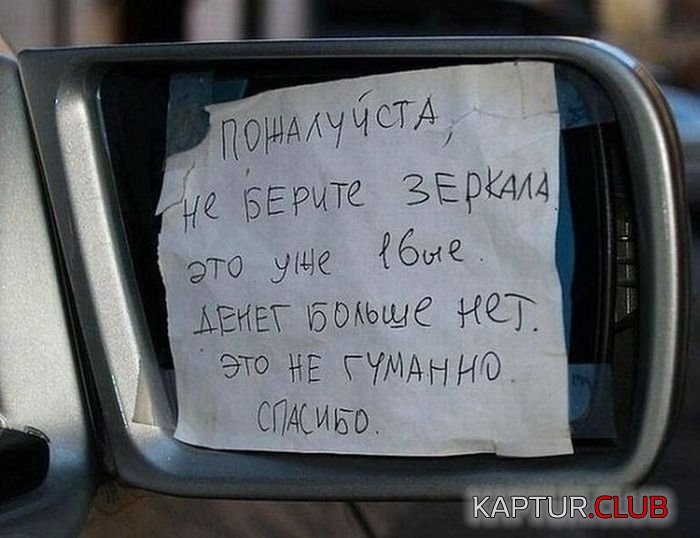 ПОЖАЛУЙСТА,
НЕ БЕРИТЕ ЗЕРКАЛА
ЭТО УЖЕ 16ые.
ДЕНЕГ БОЛЬШЕ НЕТ.
ЭТО НЕ ГУМАННО
СПАСИБО.
KAPTUR.CLUB